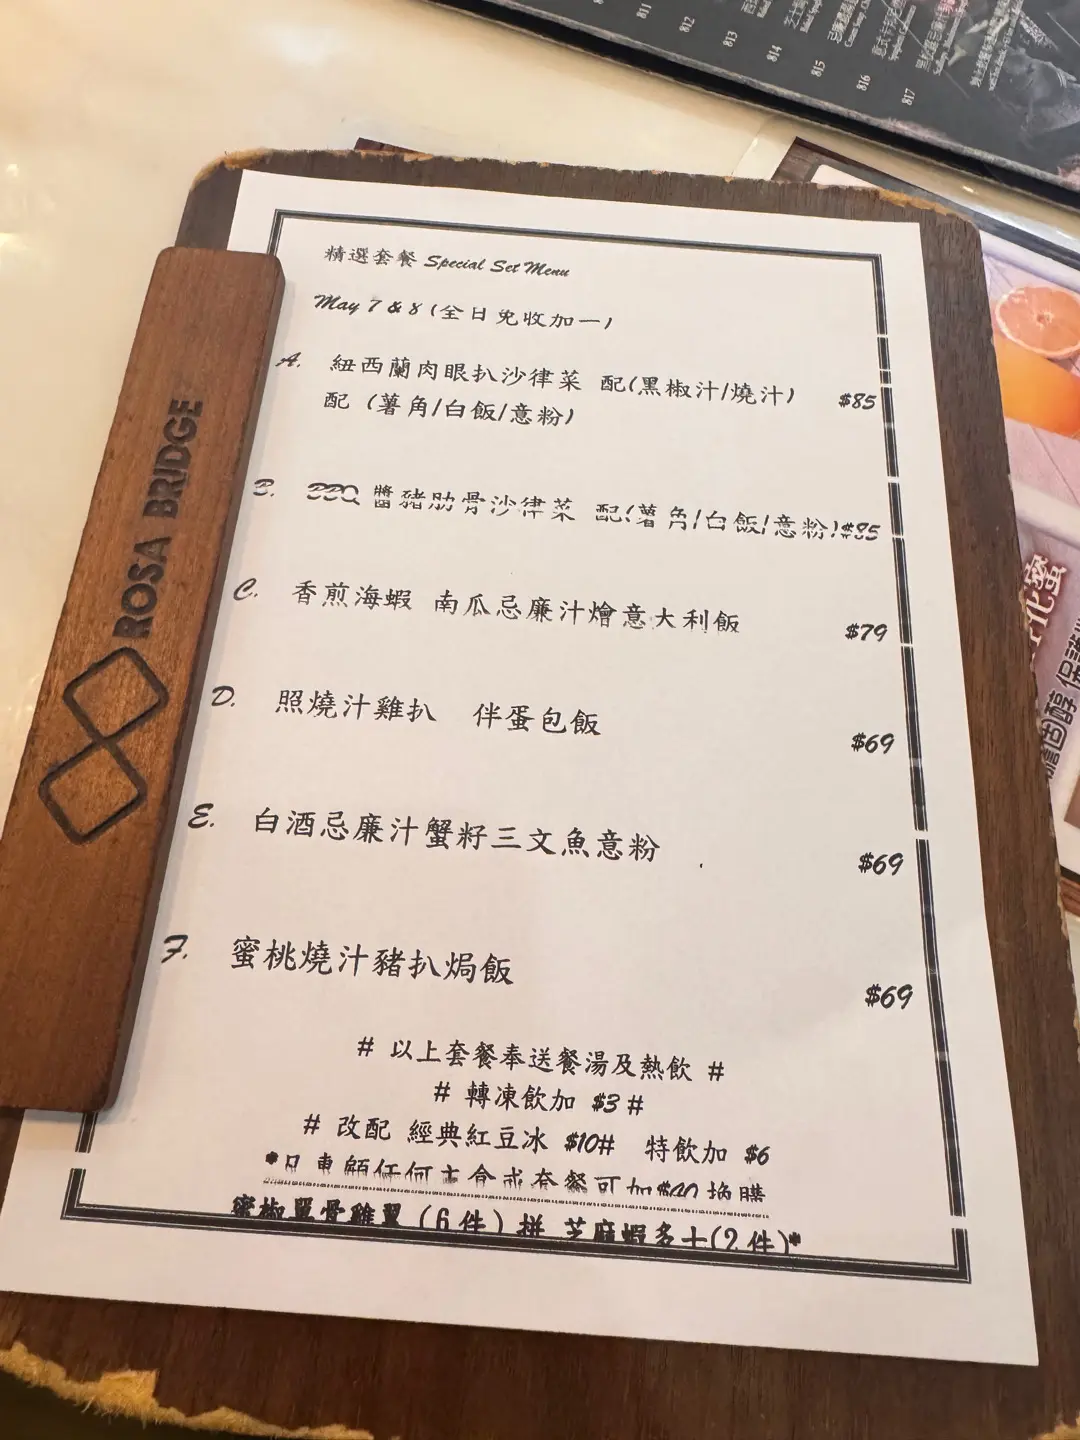 精選套餐 Special Set Menu
May 7 & 8 (全日免收加一)
A. 紐西蘭肉眼扒沙律菜 配(黑椒汁/燒汁) $85
配 (薯角/白飯/意粉)
B. BBQ 醬豬肋骨沙律菜 配(薯角/白飯/意粉)$85
C. 香煎海蝦 南瓜忌廉汁燴意大利飯 $79
D. 照燒汁雞扒 伴蛋包飯 $69
E. 白酒忌廉汁蟹籽三文魚意粉 $69
F. 蜜桃燒汁豬扒焗飯 $69
# 以上套餐奉送餐湯及熱飲 #
# 轉凍飲加 $3 #
# 改配 經典紅豆冰 $10# 特飲加 $6
任何主食或套餐可加$40換購
蜜椒單骨雞翼 (6件) 拼 芝麻蝦多士(2件)*
ROSA BRIDGE
811
812
813
814
815
816
817